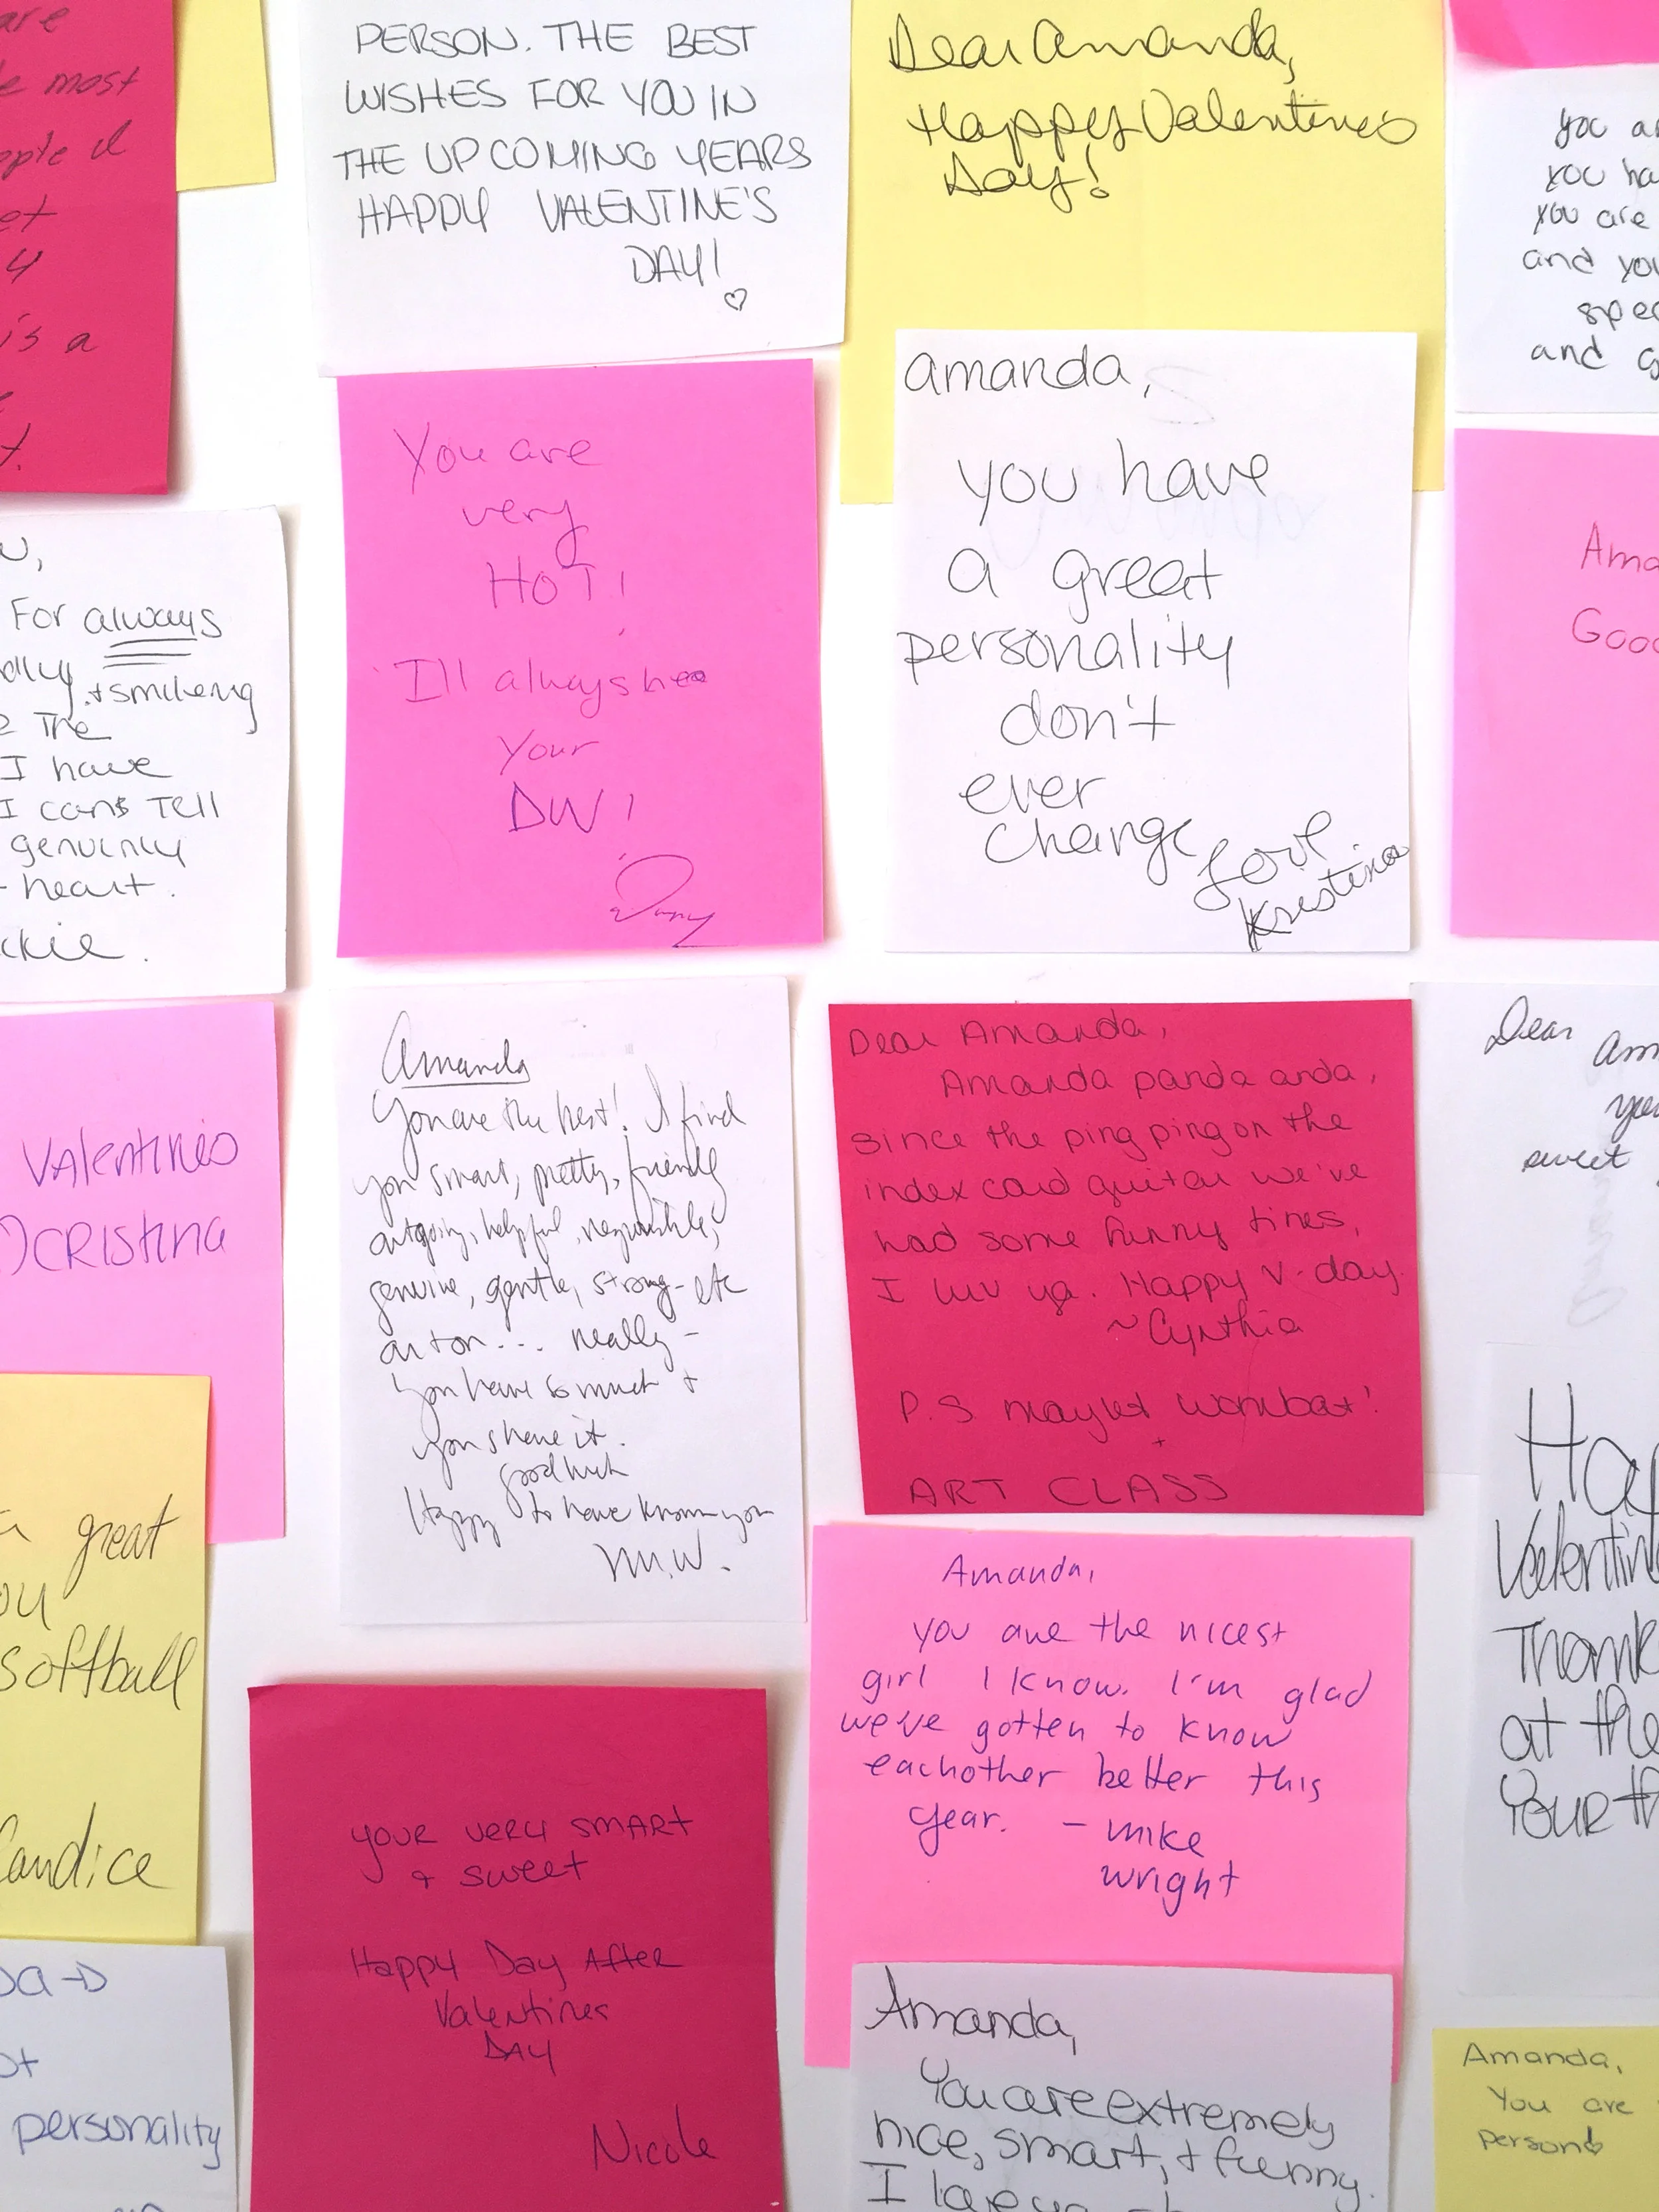 are
most
et
is a
PERSON. THE BEST
WISHES FOR YOU IN
THE UPCOMING YEARS
HAPPY VALENTINE'S
DAY!
Dear Amanda,
Happy Valentines
Day!
you
you
you are
and
and
For always
+ smileing
The
I have
I can's Tell
genuinly
heart.
You are
very
HOT!
I'll always
your
DW!
Dany
amanda,
you have
a great
personality
don't
ever
change
Love
Kristina
Good
Valentines
CRistina
Amanda
You are the best! I find
you smart, pretty, friendly
outgoing, helpful, responsible,
genuine, gentle, strong - etc
on + on... really -
you have so much +
you share it.
good luck
Happy to have known you
M.W.
Dear Amanda,
Amanda panda anda,
since the ping ping on the
index card guitar we've
had some funny times,
I luv ya. Happy V-day
~Cynthia
P.S. wombat!
+
ART CLASS
Dear
sweet
great
softball
Candice
Amanda,
you are the nicest
girl I know. I'm glad
we've gotten to know
eachother better this
year. - mike
wright
at the
YOUR
YOUR VERY SMART
+ SWEET
Happy Day After
Valentines
DAY
Nicole
personality
Amanda,
You are extremely
nice, smart, + funny.
I
Amanda,
You are
person